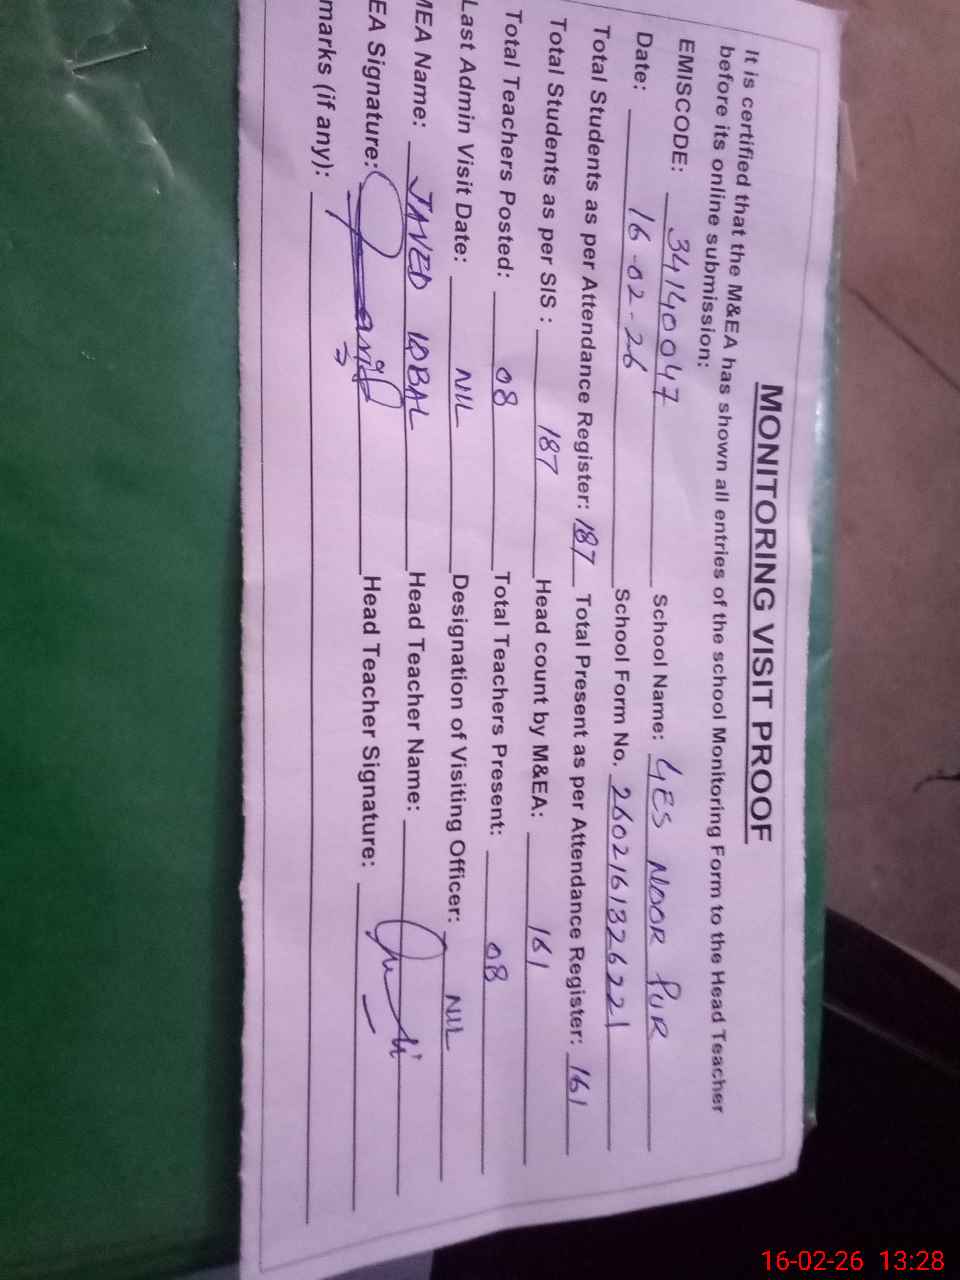 MONITORING VISIT PROOF
It is certified that the M&EA has shown all entries of the school Monitoring Form to the Head Teacher
before its online submission:
EMISCODE: 34140047 School Name: GES NOOR PUR
Date: 16-02-26 School Form No. 2602161326221
Total Students as per Attendance Register: 187 Total Present as per Attendance Register: 161
Total Students as per SIS : 187 Head count by M&EA: 161
Total Teachers Posted: 08 Total Teachers Present: 08
Last Admin Visit Date: NIL Designation of Visiting Officer: NIL
MEA Name: JAVED IQBAL Head Teacher Name:
EA Signature: Head Teacher Signature:
marks (if any):
16-02-26 13:28